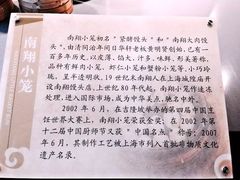 南翔小笼
南翔小笼有"紧酵馒头"和"南翔大肉馒
头",由清同治年间日华轩老板黄明贤创始,已有一
百多年历史,以皮薄、馅大、汁多、味鲜、形美著称,
品种有鲜肉小笼、虾仁小笼和蟹粉小笼等,小巧玲
珑、呈半透明状,19世纪末南翔人在上海城隍庙开
设南翔馒头店,上世纪80年代起,南翔小笼作速冻
处理,进入国际市场,成为中华美点,驰名中外。
2002年6月,在吉隆坡举办的第四届中国烹
饪世界大赛上,南翔小笼荣获金奖;在2002年第
十二届中国厨师节又获"中国名点"称号;2007年
6月,其制作工艺被上海市列入首批非物质文化
遗产名录。